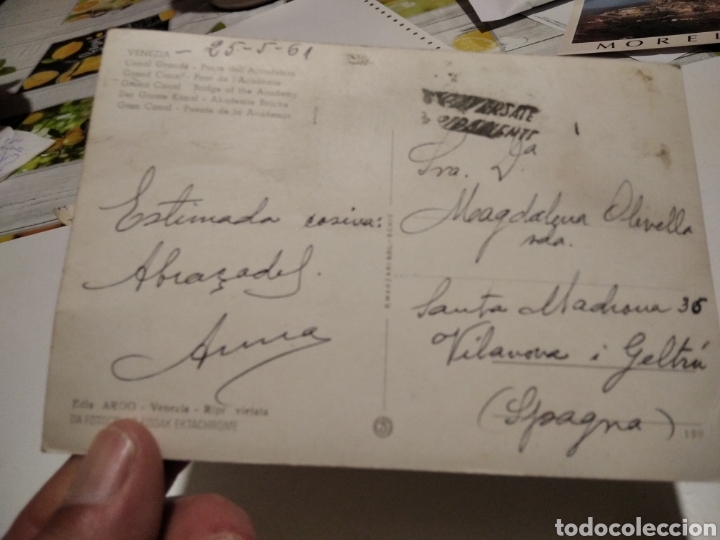 MOREL
VENEZIA - 25-5-61
Canal Grande - Ponte dell'Accademia
Grand Canal - Pont de l'Académie
Grand Canal - Bridge of the Academy
Der Grosse Kanal - Akademie Brücke
Gran Canal - Puente de la Academia
Estimada cosina:
Abraçades.
Anna
Sra. Dª
Magdalena Olivella
vda.
Santa Madrona 36
Vilanova i Geltrú
(Spagna)
Ediz ARGO - Venezia - Ripr vietata
DA FOTOCOLOR KODAK EKTACHROME
199
todocoleccion
todocoleccion.net